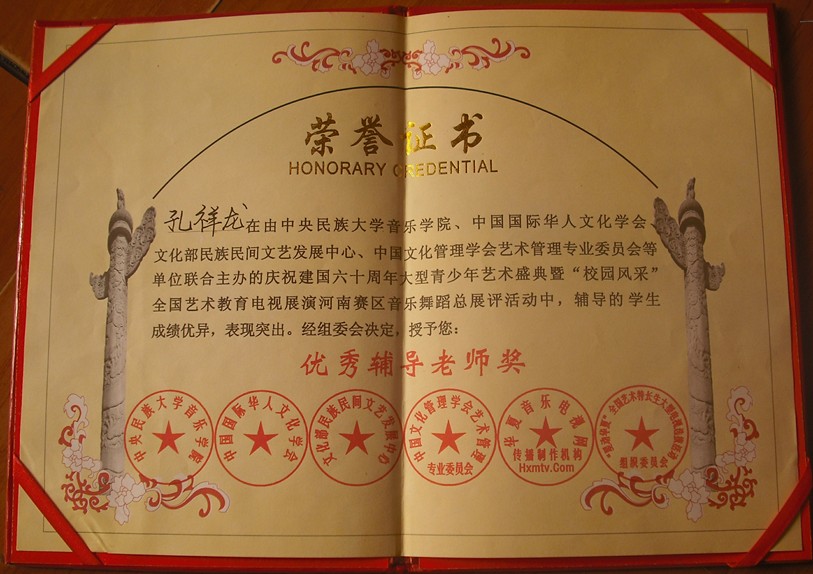 荣誉证书
HONORARY CREDENTIAL
孔祥龙在由中央民族大学音乐学院、中国国际华人文化学会、
文化部民族民间文艺发展中心、中国文化管理学会艺术管理专业委员会等
单位联合主办的庆祝建国六十周年大型青少年艺术盛典暨“校园风采”
全国艺术教育电视展演河南赛区音乐舞蹈总展评活动中，辅导的学生
成绩优异，表现突出。经组委会决定，授予您：
优秀辅导老师奖
中央民族大学音乐学院
中国国际华人文化学会
文化部民族民间文艺发展中心
中国文化管理学会艺术管理
专业委员会
华夏音乐电视网
传播制作机构
Hxmtv.Com
组织委员会